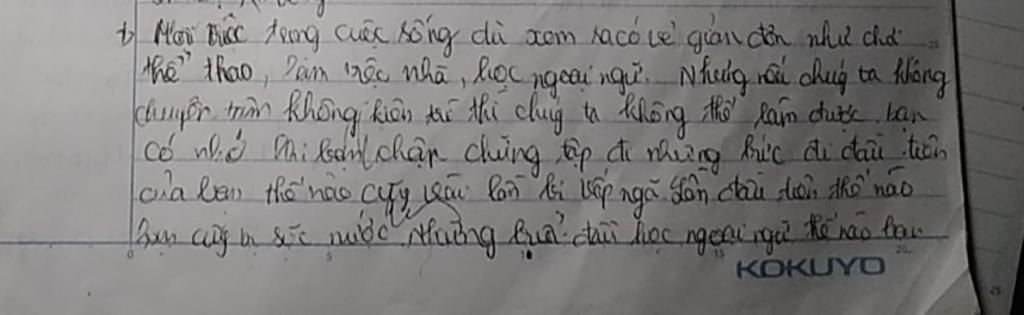 Mọi việc trong cuộc sống dù xem ra có vẻ giản đơn như chơi
thể thao, làm việc nhà, học ngoại ngữ. Nhưng nếu chúng ta không
chuyên tâm không kiên trì thì chúng ta không thể làm được. bạn
có nhớ khi bạn chập chững tập đi những bước đi đầu tiên
của bạn thế nào cũng vài lần bị vấp ngã. lần đầu tiên thế nào
bạn cũng bị sặc nước. Những buổi đầu học ngoại ngữ thế nào bạn
KOKUYO